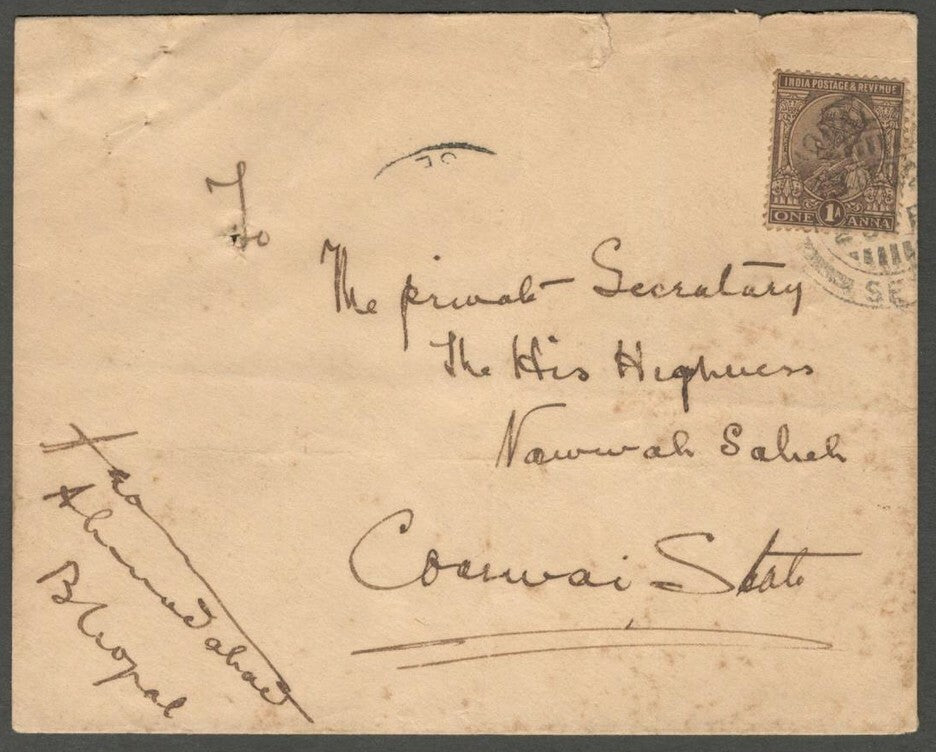 INDIA POSTAGE & REVENUE
ONE 1A ANNA
SE
To
The private Secretary
The His Highness
Nawwab Saheb
Coorwai State
From
Ahmedabad
Bhopal